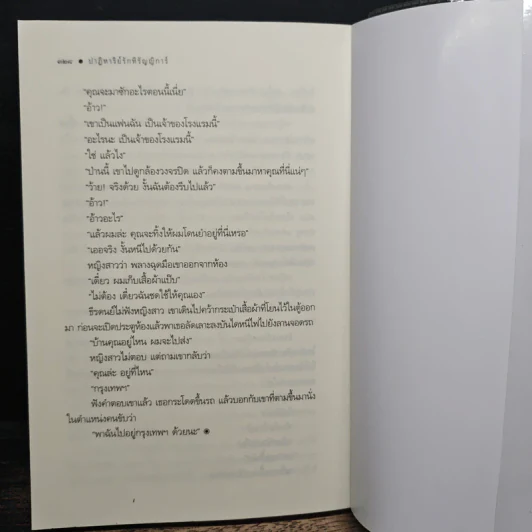 ๓๒๘ ● ปาฏิหาริย์รักหิรัญญิการ์
"คุณจะมาซักอะไรตอนนี้เนี่ย"
"อ้าว!"
"เขาเป็นแฟนฉัน เป็นเจ้าของโรงแรมนี้"
"อะไรนะ เป็นเจ้าของโรงแรมนี้"
"ใช่ แล้วไง"
"ป่านนี้ เขาไปดูกล้องวงจรปิด แล้วก็คงตามขึ้นมาหาคุณที่นี่แน่ๆ"
"ว้าย! จริงด้วย งั้นฉันต้องรีบไปแล้ว"
"อ้าว!"
"อ้าวอะไร"
"แล้วผมล่ะ คุณจะทิ้งให้ผมโดนยำอยู่ที่นี่เหรอ"
"เออจริง งั้นหนีไปด้วยกัน"
หญิงสาวว่า พลางฉุดมือเขาออกจากห้อง
"เดี๋ยว ผมเก็บเสื้อผ้าแป๊บ"
"ไม่ต้อง เดี๋ยวฉันชดใช้ให้คุณเอง"
ธีรดนย์ไม่ฟังหญิงสาว เขาเดินไปคว้ากระเป๋าเสื้อผ้าที่โยนไว้ในตู้ออก
มา ก่อนจะเปิดประตูห้องแล้วพาเธอลัดเลาะลงบันไดหนีไฟไปยังลานจอดรถ
"บ้านคุณอยู่ไหน ผมจะไปส่ง"
หญิงสาวไม่ตอบ แต่ถามเขากลับว่า
"คุณล่ะ อยู่ที่ไหน"
"กรุงเทพฯ"
ฟังคำตอบเขาแล้ว เธอกระโดดขึ้นรถ แล้วบอกกับเขาที่ตามขึ้นมานั่ง
ในตำแหน่งคนขับว่า
"พาฉันไปอยู่กรุงเทพฯ ด้วยนะ"